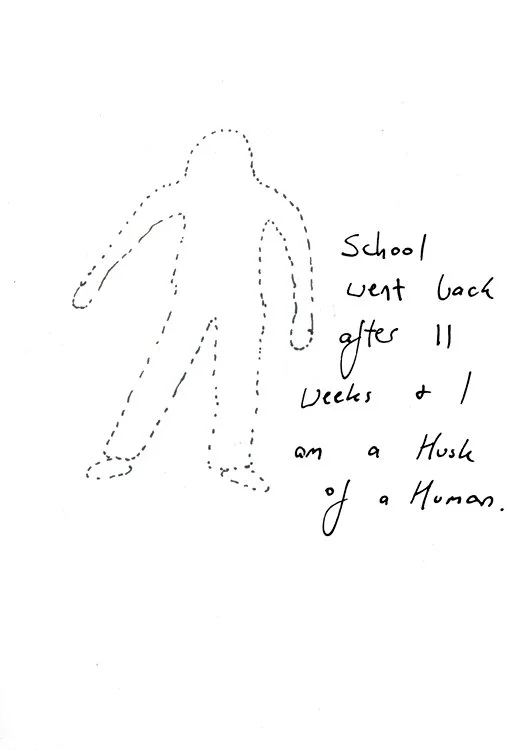 School
went back
after 11
weeks & I
am a Husk
of a Human.